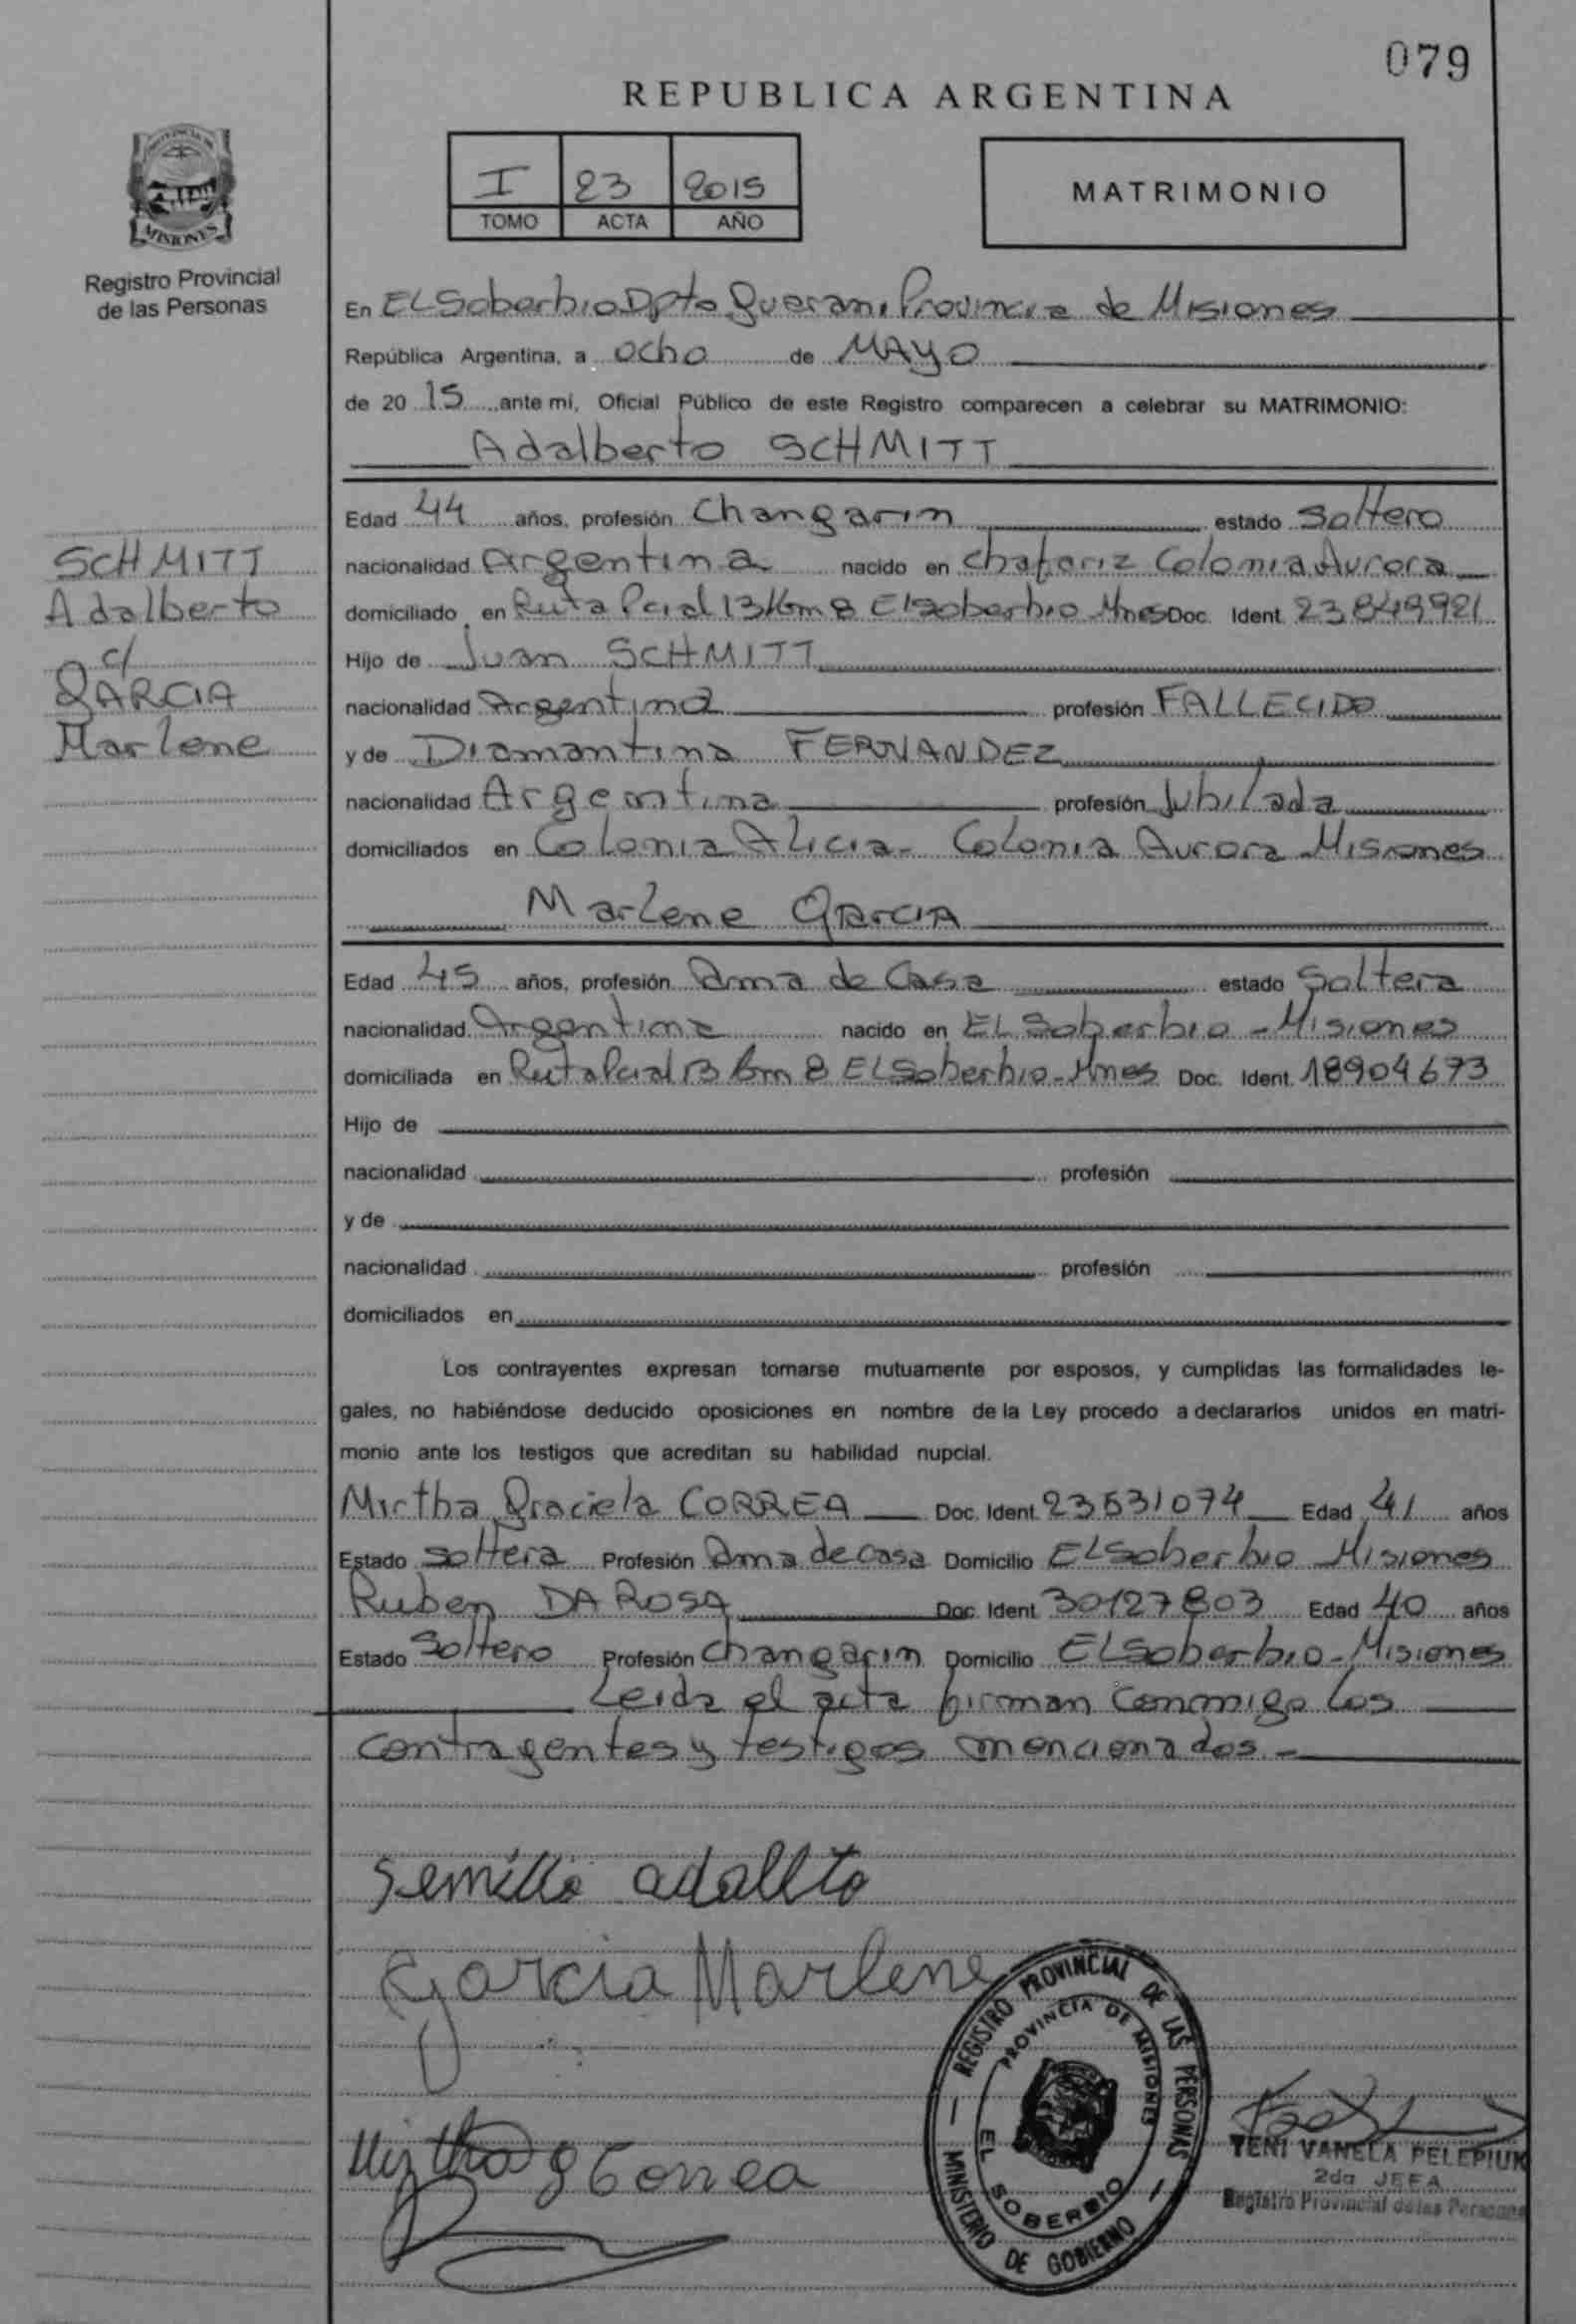 079
REPUBLICA ARGENTINA
I 23 2015
TOMO ACTA AÑO
MATRIMONIO
PROVINCIA DE
MISIONES
Registro Provincial
de las Personas
En EL Soberbio Dpto Guarani Provincia de Misiones
República Argentina, a ocho de MAYO
de 20 15 ante mí, Oficial Público de este Registro comparecen a celebrar su MATRIMONIO:
Adalberto SCHMITT
Edad 44 años, profesión Changarin estado Soltero
SCHMITT
Adalberto
c/
GARCIA
Marlene
nacionalidad Argentina nacido en Chafariz Colonia Aurora
domiciliado en Ruta Pcial 13 Km 8 El Soberbio Mnes Doc. Ident. 23.849921
Hijo de Juan SCHMITT
nacionalidad Argentina profesión FALLECIDO
y de Diamantina FERNANDEZ
nacionalidad Argentina profesión Jubilada
domiciliados en Colonia Alicia - Colonia Aurora Misiones
Marlene GARCIA
Edad 45 años, profesión Ama de Casa estado Soltera
nacionalidad Argentina nacido en EL Soberbio - Misiones
domiciliada en Ruta Pcial 13 Km 8 EL Soberbio - Mnes Doc. Ident. 18904673
Hijo de
nacionalidad profesión
y de
nacionalidad profesión
domiciliados en
Los contrayentes expresan tomarse mutuamente por esposos, y cumplidas las formalidades le-
gales, no habiéndose deducido oposiciones en nombre de la Ley procedo a declararlos unidos en matri-
monio ante los testigos que acreditan su habilidad nupcial.
Mirtha Graciela CORREA Doc. Ident. 23531074 Edad 41 años
Estado soltera Profesión Ama de casa Domicilio EL Soberbio Misiones
Ruben DA ROSA Doc. Ident. 30127803 Edad 40 años
Estado Soltero Profesión Changarin Domicilio EL Soberbio - Misiones
Leida el acta firman conmigo los
contragentes y testigos mencionados -
Garcia Marlene
Mirtha G Correa
REGISTRO PROVINCIAL DE LAS PERSONAS
MINISTERIO DE GOBIERNO
PROVINCIA DE MISIONES
EL SOBERBIO
YENI VANELA PELEPIUK
2da JEFA
Registro Provincial de las Personas